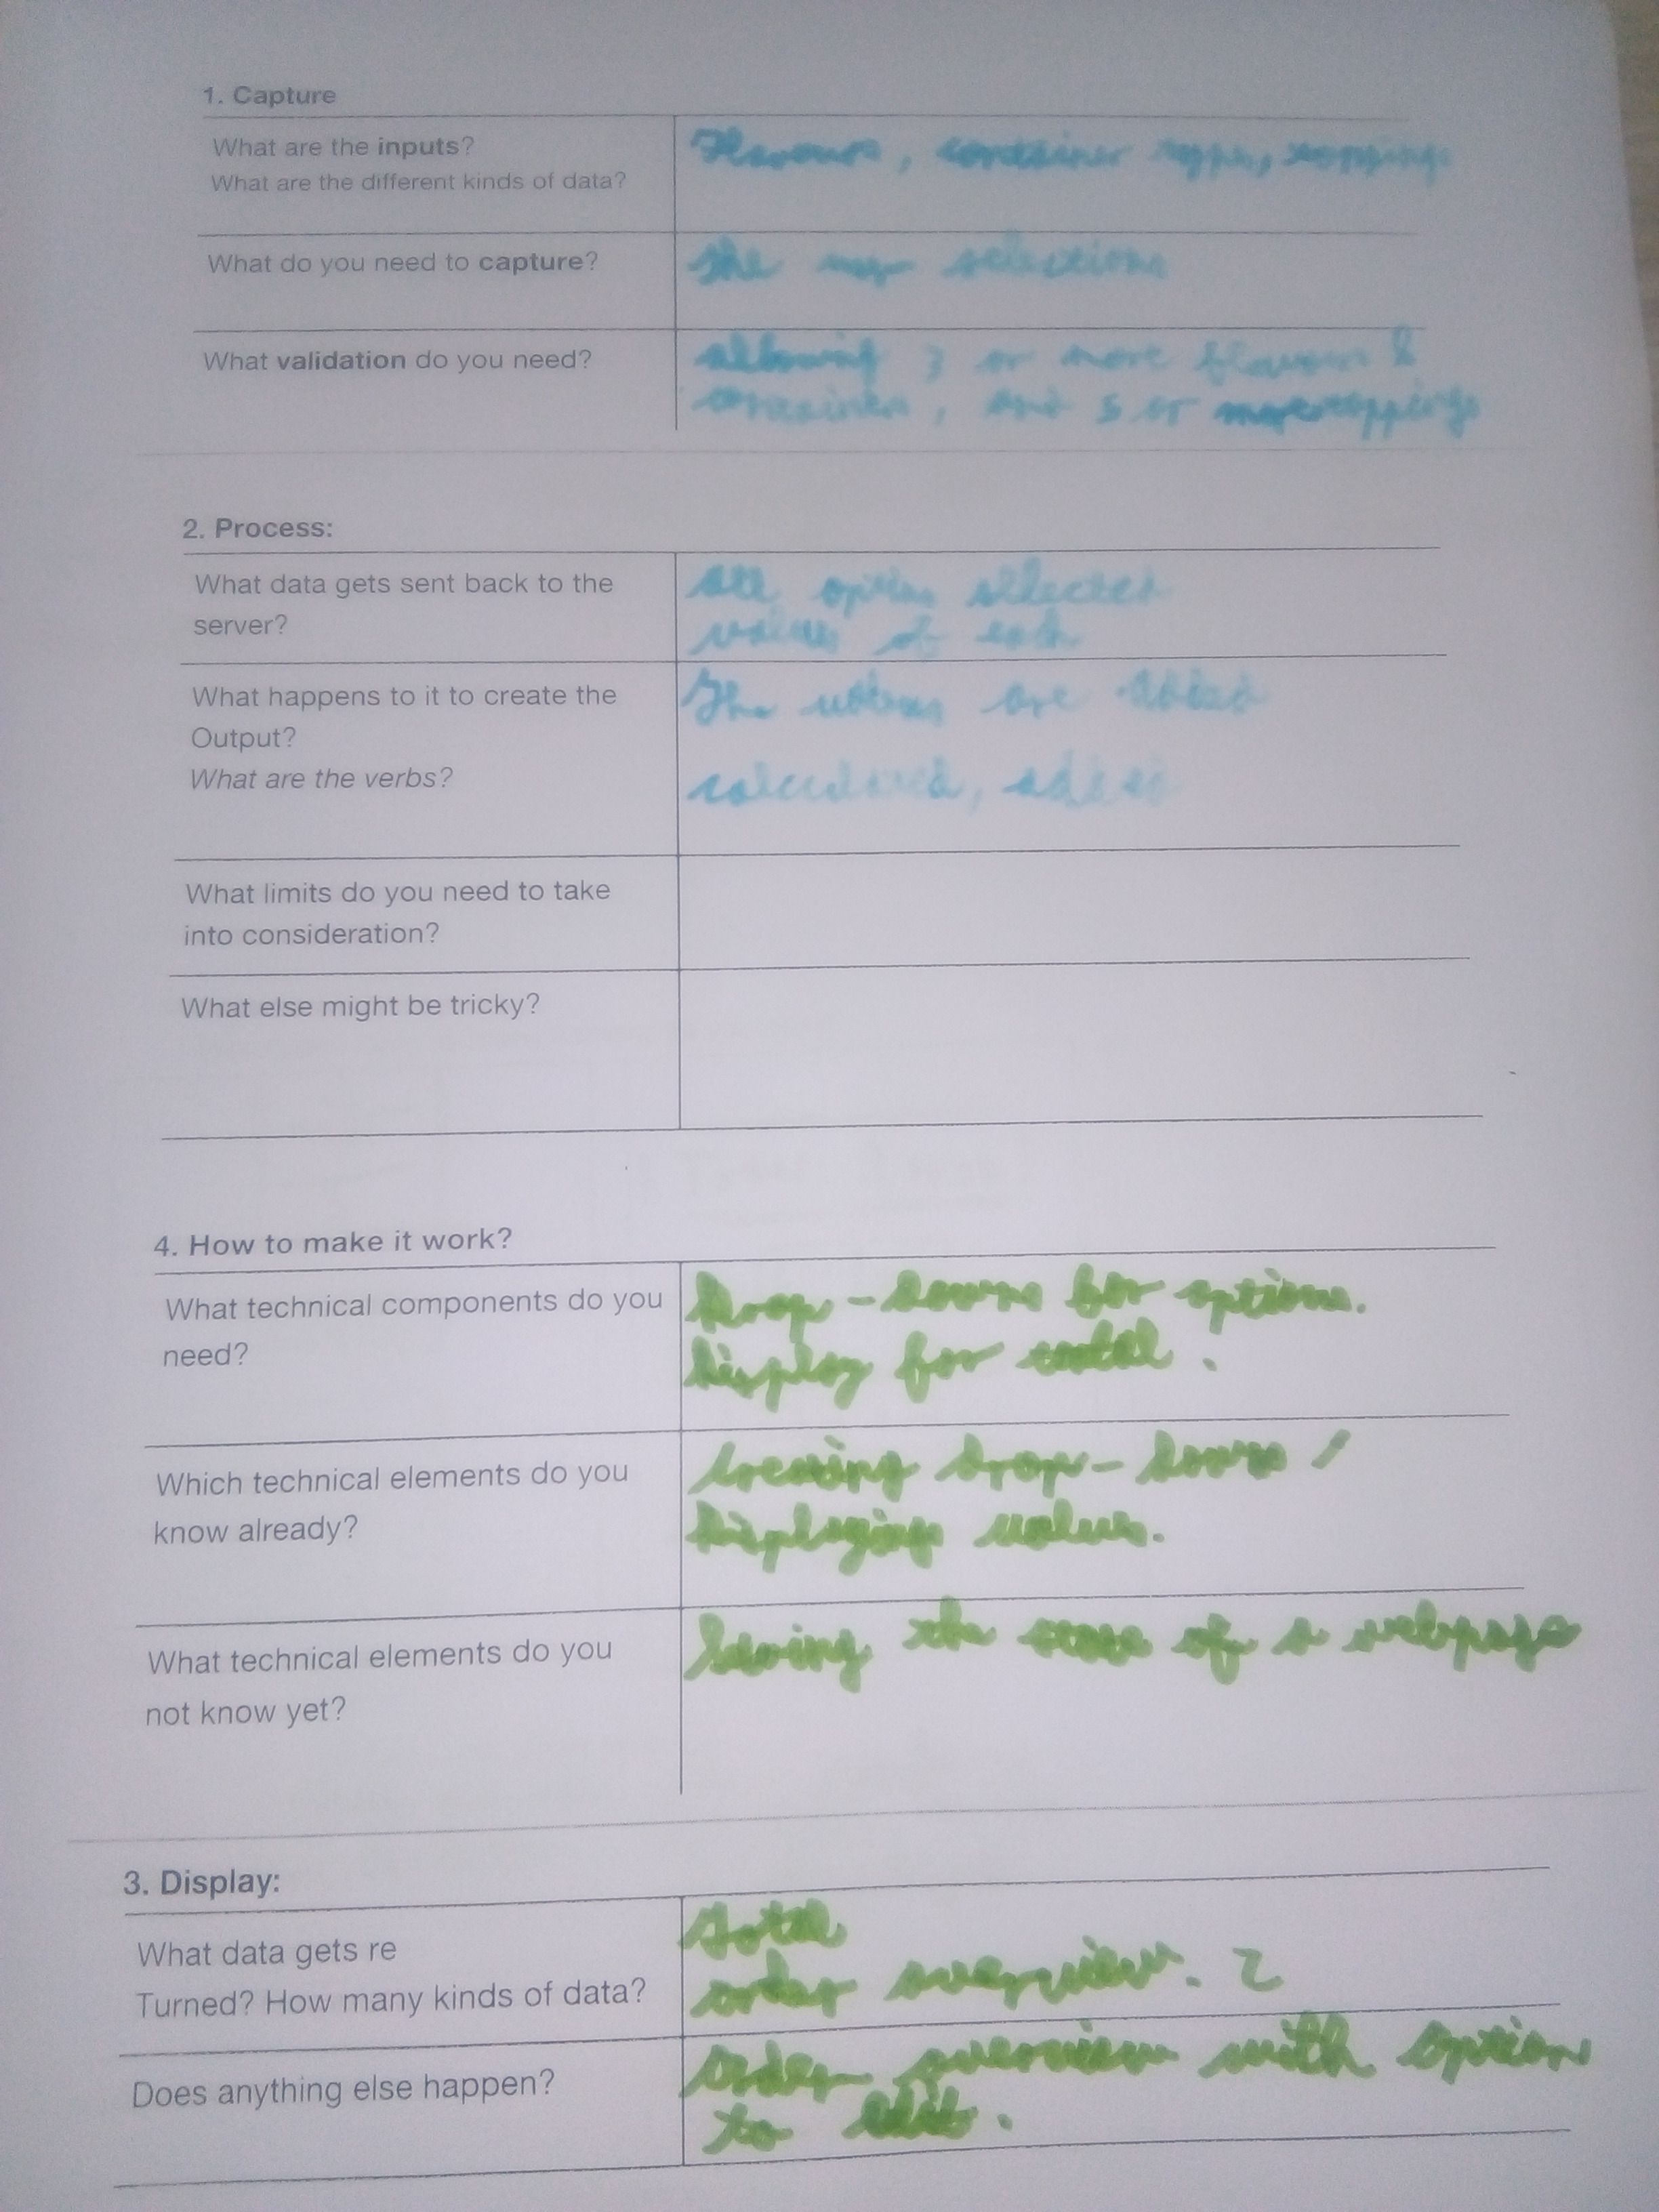 1. Capture
What are the inputs?
What are the different kinds of data?
Flavours, container type, toppings
What do you need to capture?
the user selections
What validation do you need?
allowing 3 or more flavours &
containers, and 5 or more toppings
2. Process:
What data gets sent back to the
server?
all option selected
values of each
What happens to it to create the
Output?
What are the verbs?
The values are added
calculated, added
What limits do you need to take
into consideration?
What else might be tricky?
4. How to make it work?
What technical components do you
need?
Drop-downs for options.
Display for total.
Which technical elements do you
know already?
Creating drop-downs /
Displaying values.
What technical elements do you
not know yet?
Saving the state of a webpage
3. Display:
What data gets re
Turned? How many kinds of data?
Total
order overview. 2
Does anything else happen?
Order overview with option
to edit.